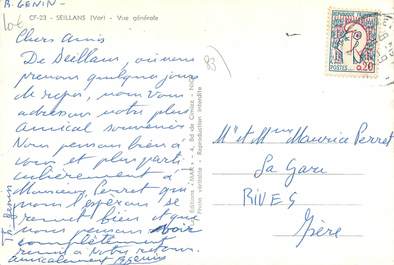 R. GENIN -
CF-23 - SEILLANS (Var) - Vue générale
10€
83
Chers Amis
De Seillans, où nous
prenons quelques jours
de repos, nous vous
adressons notre plus
Amical souvenir.
Nous pensons bien à
vous et plus parti
culièrement à
Monsieur Perret qui
nous l'espérons se
remet bien et que
nous pensons voir
complètement
remis à notre retour.
amicalement RGenin
Th Genin
Editions
Photo véritable - Reproduction interdite
REPUBLIQUE FRANCAISE
0,20
POSTES
Mr et Mme Maurice Perret
La Gare
RIVES
Isère